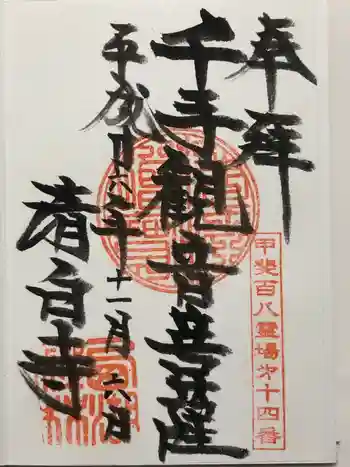 奉拝
甲斐百八霊場第十四番
千手觀音菩薩
平成 年十一月 六日
清白寺